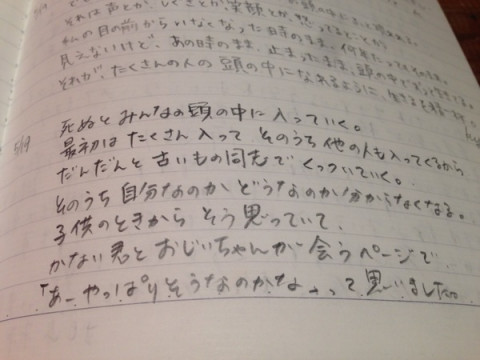 私の目の前からいなくなった時のまま、何年たってもそのまま。
見えないけど、あの時のまま、止まったまま、頭の中に
それが、たくさんの人の頭の中になれるように、
5/19 死ぬとみんなの頭の中に入っていく。
最初はたくさん入って そのうち他の人も入ってくるから
だんだんと古いもの同志でくっついていく。
そのうち自分なのかどうなのか分からなくなる。
子供のときからそう思っていて、
かない君とおじいちゃんが会うページで
「あーやっぱりそうなのかな、、って思いました。